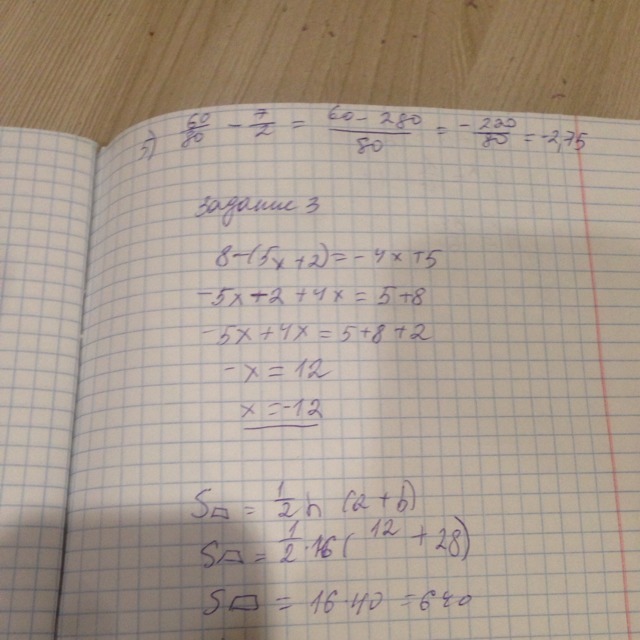 5) 60/80 - 7/2 = 60-280/80 = -220/80 = -2,75
Задание 3
8-(5x+2)=-4x+5
-5x-2+4x=5+8
-5x+4x=5+8+2
-x=12
x=-12
S▱ = 1/2 h (a+b)
S▱ = 1/2·16(12+28)
S▱ = 16·40=640